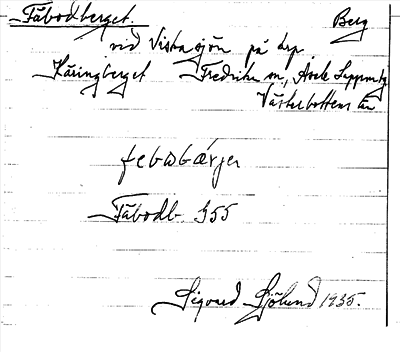 Fäbodberget. Berg
vid Vistasjön på krp
Käringberget Fredrika sn, Åsele Lappmark
Västerbottens län
febωbærjer
Fäbodb. S 55
Sigvard Sjölund 1935.